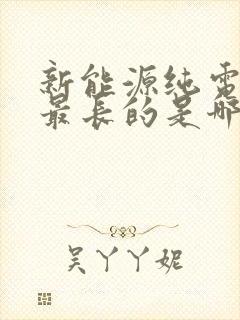 新能源纯电
最长的是哪
吴丫丫妮